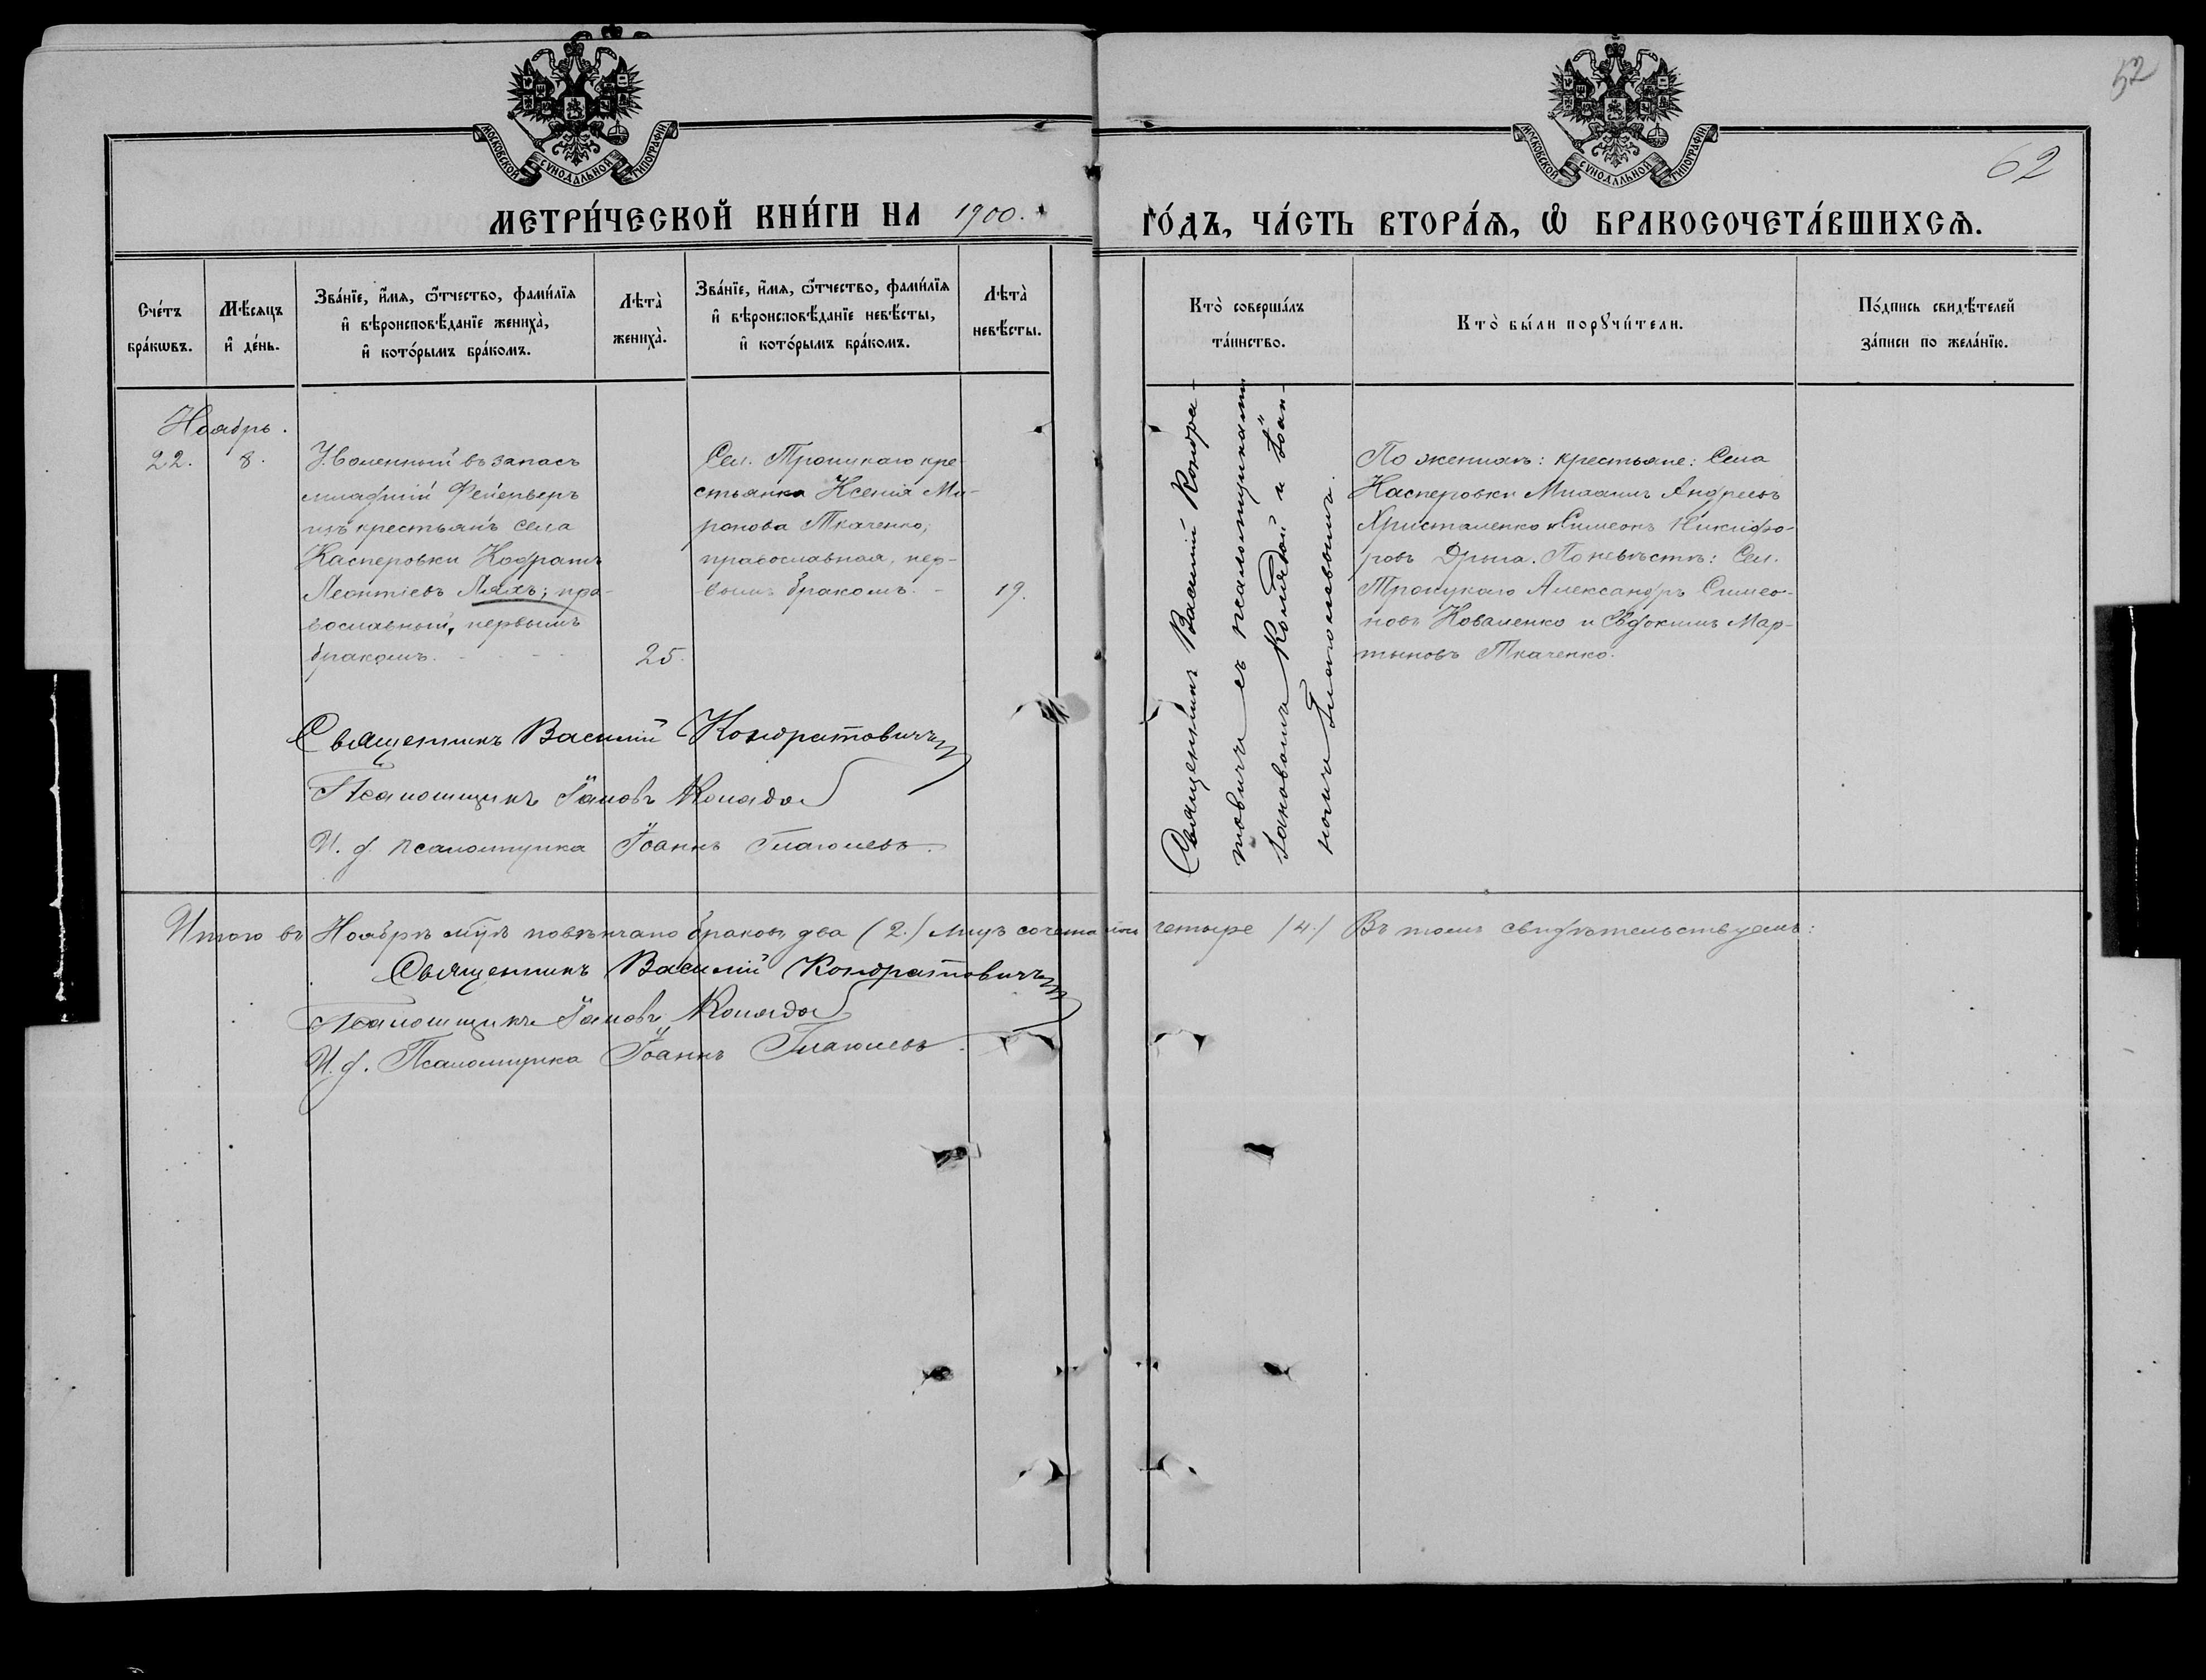 52
62
МОСКОВСКОЙ СѴНОДАЛЬНОЙ ТИПОГРАФІИ
МОСКОВСКОЙ СѴНОДАЛЬНОЙ ТИПОГРАФІИ
МЕТРИ́ЧЕСКОЙ КНИ́ГИ НА 1900. ГО́ДЪ, ЧА́СТЬ ВТОРА́Ѧ, Ѽ БРАКОСОЧЕТА́ВШИХСѦ.
Сче́тъ бра́кѡвъ.
Мѣ́сяцъ и҆ де́нь.
Зва́нїе, и҆́мя, ѻ҆́тчество, фами́лїя
и҆ вѣроисповѣ́данїе жениха̀,
и҆ кото́рымъ бра́комъ.
Лѣта̀ жениха̀.
Зва́нїе, и҆́мя, ѻ҆́тчество, фами́лїя
и҆ вѣроисповѣ́данїе невѣ́сты,
и҆ кото́рымъ бра́комъ.
Лѣта̀ невѣ́сты.
Кто̀ соверша́лъ та́инство.
Кто̀ бы́ли порꙋчи́тели.
По́дпись свидѣ́телей за́писи по жела́нїю.
Ноябрь.
22. 8.
Уволенный въ запасъ
младшій Фейерверъ
изъ крестьянъ села
Касперовки Кодратъ
Леонтіевъ Ляхъ; пра-
вославный, первымъ
бракомъ. 25.
Сел. Троицкаго кре-
стьянка Ксенія Ми-
ронова Ткаченко,
православная, пер-
вымъ бракомъ. - 19.
Священникъ Василій Кондра-
товичъ съ псаломщиками
Іаковомъ Колядой и Іоан-
номъ
По женихѣ: крестьяне: Села
Касперовки Михаилъ Андреевъ
Христаленко и Симеонъ Никифо-
ровъ Дрыга. По невѣстѣ: Сел.
Троицкаго Александръ Симео-
новъ Коваленко и Евдокимъ Мар-
тыновъ Ткаченко.
Священникъ Василій Кондратовичъ
Псаломщикъ Іаковъ Коляда
И. д. псаломщика Іоаннъ
Итого въ Ноябрѣ м-цѣ повѣнчано браковъ два (2.) лицъ четыре /4./ Въ томъ свидѣтельствуемъ:
Священникъ Василій Кондратовичъ
Псаломщикъ Іаковъ Коляда
И. д. Псаломщика Іоаннъ